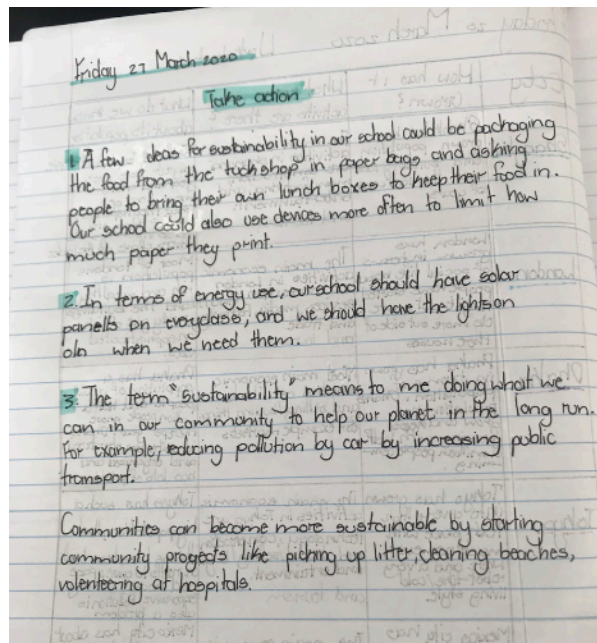 Friday 27 March 2020
Take action
1. A few ideas for sustainability in our school could be packaging
the food from the tuckshop in paper bags and asking
people to bring their own lunch boxes to keep their food in.
Our school could also use devices more often to limit how
much paper they print.
2. In terms of energy use, our school should have solar
panells on everyclass, and we should have the lights on
oln when we need them.
3. The term "sustainability" means to me doing what we
can in our community to help our planet in the long run.
For example, reducing pollution by car by increasing public
transport.
Communities can become more sustainable by starting
community progects like picking up litter, cleaning beaches,
volenteering at hospitals.